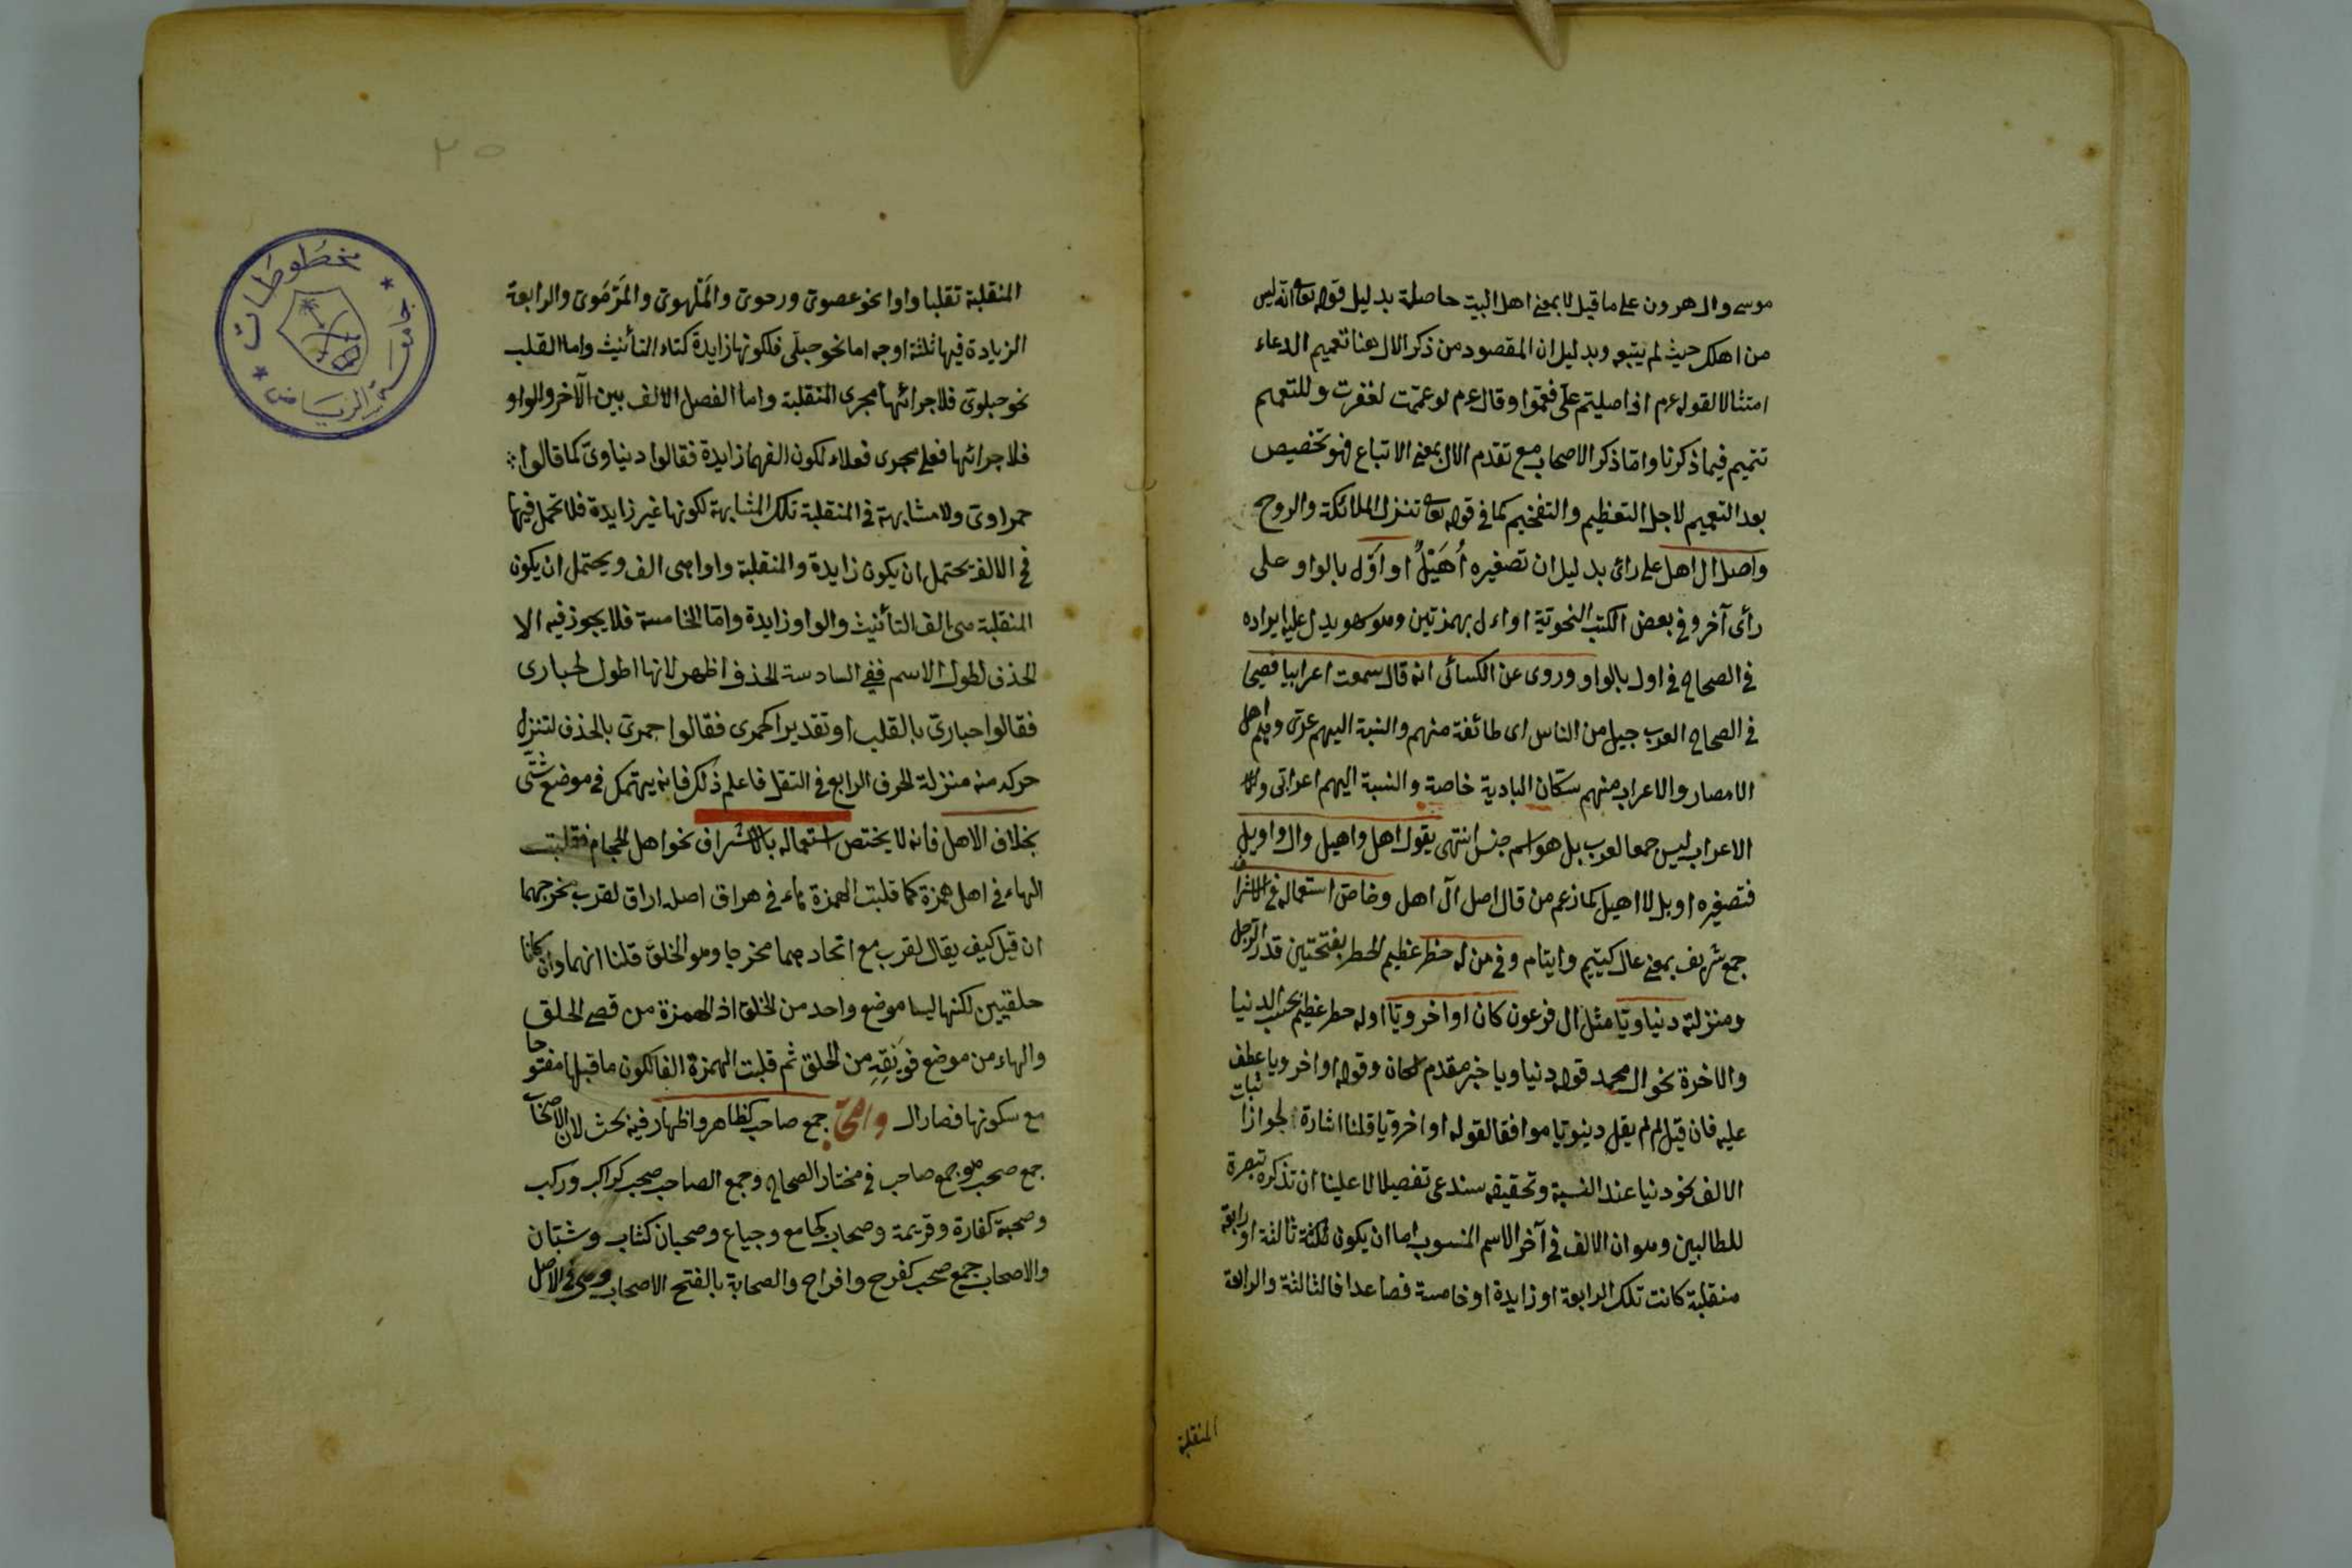 موسى وال هرون على ما قيل لا بمعنى اهل البيت حاصلة بدليل قوله تع انه ليس
من اهلك حيث لم يتبعه وبدليل ان المقصود من ذكر الال هنا تعميم الدعاء
امتثالا لقوله عم اذا صليتم على فعمموا وقال عم لو عممت لغفرت وللتعميم
تتميم فيما ذكرنا واما ذكر الاصحاب مع تقدم الال بمعنى الاتباع فهو تخصيص
بعد التعميم لاجل التعظيم والتفخيم كما فى قوله تع تنزل الملائكة والروح
واصل ال اهل على رائ بدليل ان تصغيره أُهَيْلٌ او اَوَل بالواو على
رأى آخر وفى بعض الكتب النحوية اوءل بهمزتين وهو سهو يدل عليه ايراده
فى الصحاح فى اول بالواو وروى عن الكسائى انه قال سمعت اعرابيا فصيحا
فى الصحاح العرب جيل من الناس اى طائفة منهم والنسبة اليهم عربى وهم اهل
الامصار والاعراب منهم سكان البادية خاصة والنسبة اليهم اعرابى
الاعراب ليس جمعا لعرب بل هو اسم جنس انتهى يقول اهل واهيل وال واويل
فتصغيره اويل لا اهيل كما زعم من قال اصل آل اهل وخاص استعماله فى الاشراف
جمع شريف بمعنى عال كيتيم وايتام وفى من له خطر عظيم الخطر بفتحتين قدر الرجل
ومنزلته دنياويا مثل ال فرعون كان او اخرويا او له خطر عظيم بحسب الدنيا
والاخرة نحو ال محمد قوله دنياويا خبر مقدم لكان وقوله او اخرويا عطف
عليه فان قيل لم لم يقل دنيويا موافقا لقوله او اخرويا قلنا اشارة لجواز اثبات
الالف نحو دنيا عند النسبة وتحقيقه يستدعى تفصيلا لا علينا ان نذكره تبصرة
للطالبين وهو ان الالف فى آخر الاسم المنسوب اما ان يكون ثالثة او رابعة
منقلبة كانت تلك الرابعة او زايدة او خامسة فصاعدا فالثالثة والرابعة
المنقلبة
٢٥
مخطوطات
جامعة الرياض
المنقلبة تقلبا واوا نحو عصوى ورحوى والمَلْهوى والمَرْمَوى والرابعة
الزيادة فيها ثلثة اوجه اما نحو حبلى فلكونها زايدة كتاء التأنيث واما القلب
نحو حبلوى فلاجرائها مجرى المنقلبة واما الفصل الالف بين الآخر والواو
فلاجرائها فعلى مجرى فعلاء لكون الفهما زايدة فقالوا دنياوى كما قالوا
حمراوى ولا مشابهة فى المنقلبة تلك المشابهة لكونها غير زايدة فلا تحمل فيها
فى الالف يحتمل ان يكون زايدة والمنقلبة واوا هى الف ويحتمل ان يكون
المنقلبة هى الف التأنيث والواو زايدة واما الخامسة فلا يجوز فيه الا
الحذف لطول الاسم ففى السادسة الحذف اظهر لانها اطول لحبارى
فقالوا حبارى بالقلب او تقديرا كجمزى فقالوا جمزى بالحذف لتنزل
حركة منه منزلة الحرف الرابع فى الثقل فاعلم ذلك فانه يهتمك فى موضع شتى
بخلاف الاهل فانه لا يختص استعماله بالاشراف نحو اهل الحجام فقلبت
الهاء فى اهل همزة كما قلبت الهمزة هاء فى هراق اصله اراق لقرب مخرجهما
ان قيل كيف يقال لقرب مع اتحادهما مخرجا وهو الحلق قلنا انهما وان كانا
حلقيين لكنهما ليسا موضع واحد من الحلق اذ الهمزة من قصى الحلق
والهاء من موضع فويقه من الحلق ثم قلبت الهمزة الفا لكون ما قبلها مفتوحا
مع سكونها فصار ال واصحابه جمع صاحب كظاهر واظهار فيه بحث لان الاصحاب
جمع صحب هو جمع صاحب فى مختار الصحاح وجمع الصاحب صحب كراكب وركب
وصحبة كفارة وفرهة وصحاب كجامع وجياع وصحبان كشاب وشبان
والاصحاب جمع صحب كفرخ وافراخ والصحابة بالفتح الاصحاب وهى فى الاصل